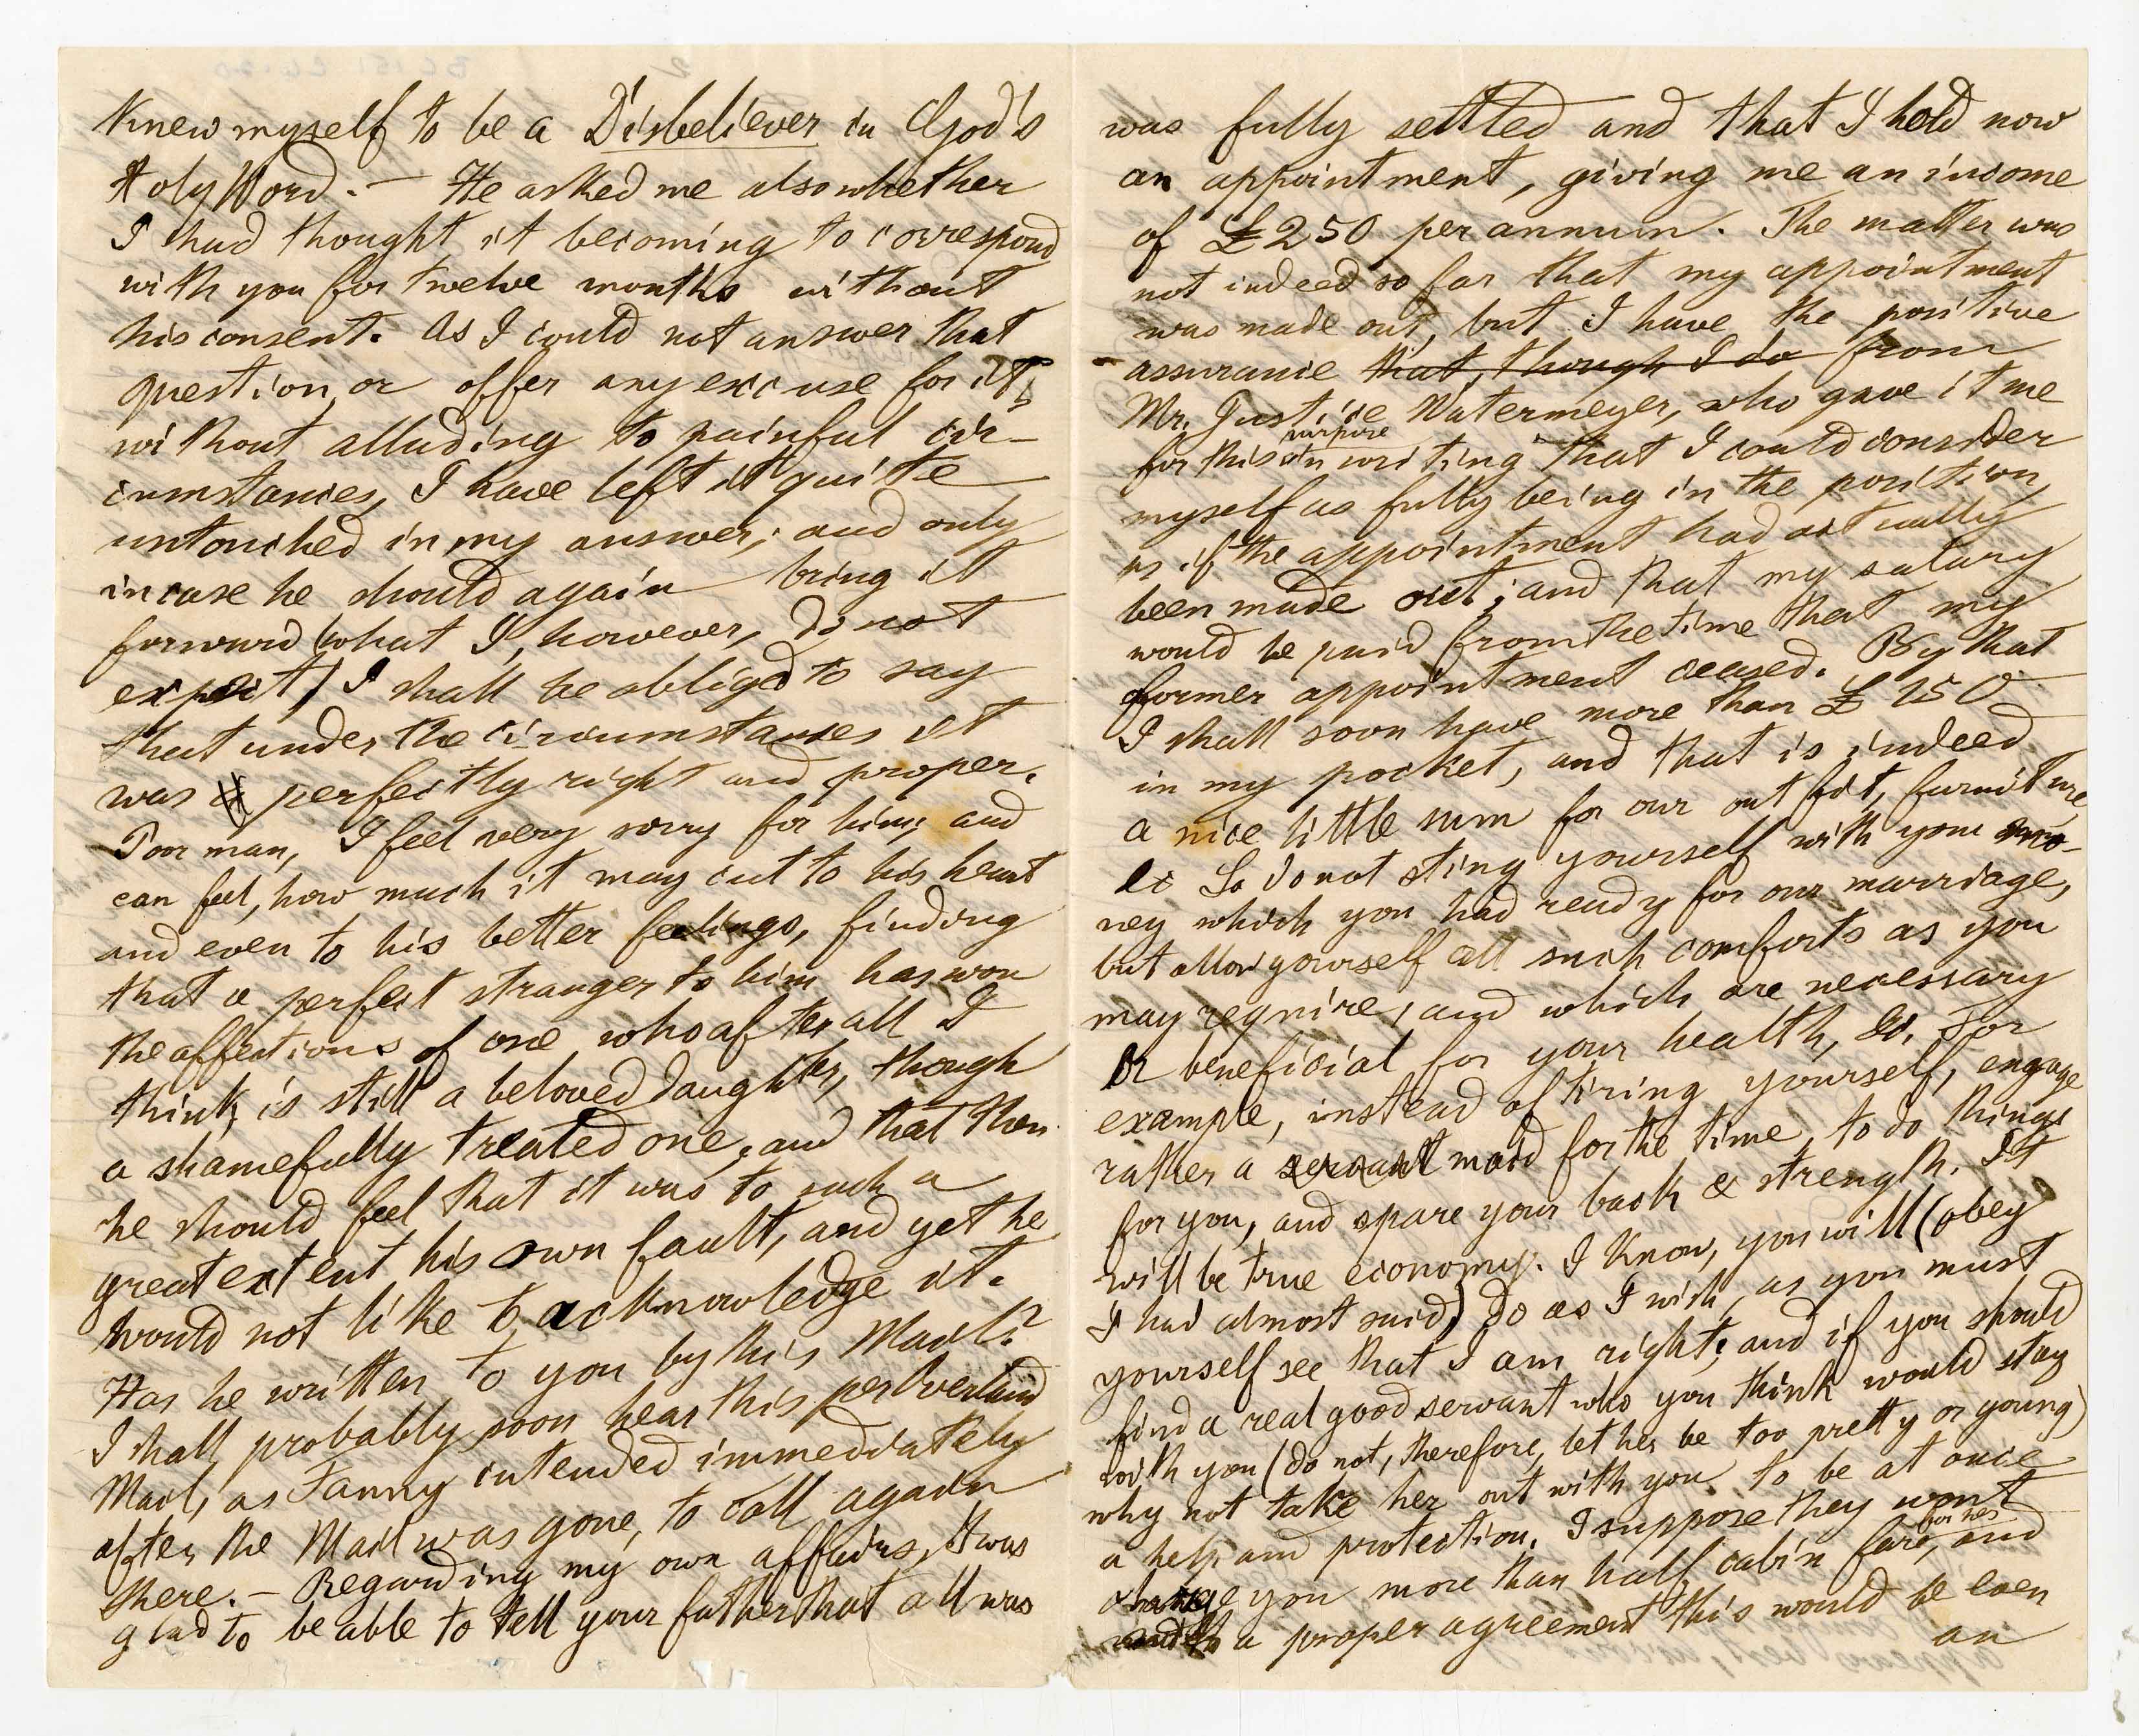 Knew myself to be a Disbeliever in God's
Holy Word. — He asked me also whether
I had thought it becoming to correspond
with you for twelve months without
his consent. As I could not answer that
question, or offer any excuse for it,
without alluding to painful cir-
cumstances, I have left it quite
untouched in my answer; and only
in case he should again bring it
forward (what I, however, do not
expect) I shall be obliged to say
that under the circumstances it
was perfectly right and proper.
Poor man, I feel very sorry for him; and
can feel, how much it may cut to his heart
and even to his better feelings, finding
that a perfect stranger to him has won
the affections of one who after all I
think, is still a beloved daughter, though
a shamefully treated one; and that then
he should feel that it was to such a
great extent his own fault, and yet he
would not like to acknowledge it.
Has he written to you by this Mail?
I shall probably soon hear this per Overland
Mail, as Fanny intended immediately
after the Mail was gone, to call again
there. — Regarding my own affairs, I was
glad to be able to tell your father that all was
was fully settled and that I hold now
an appointment, giving me an income
of £250 per annum. The matter was
not indeed so far that my appointment
was made out, but I have the positive
assurance that, though I do from
Mr. Justice Watermeyer, who gave it me
for this purpose in writing that I could consider
myself as fully being in the position
as if the appointment had actually
been made out; and that my salary
would be paid from the time that my
former appointment ceased. By that
I shall soon have more than £ 150
in my pocket, and that is indeed
a nice little sum for our outfit, furniture,
&c So do not sting yourself with your mo-
ney which you had ready for our marriage,
but allow yourself all such comforts as you
may require, and which are necessary
or beneficial for your health, &c. For
example, instead of tiring yourself, engage
rather a servant maid for the time, to do things
for you, and spare your back & strength. It
will be true economy. I know, you will (obey
I had almost said) do as I wish, as you must
yourself see that I am right; and if you should
find a real good servant who you think would stay
with you (do not, therefore, let her be too pretty or young)
why not take her out with you to be at once
a help and protection. I suppose they wont
charge you more than half cabin fare for her, and
a proper agreement this would be even
an